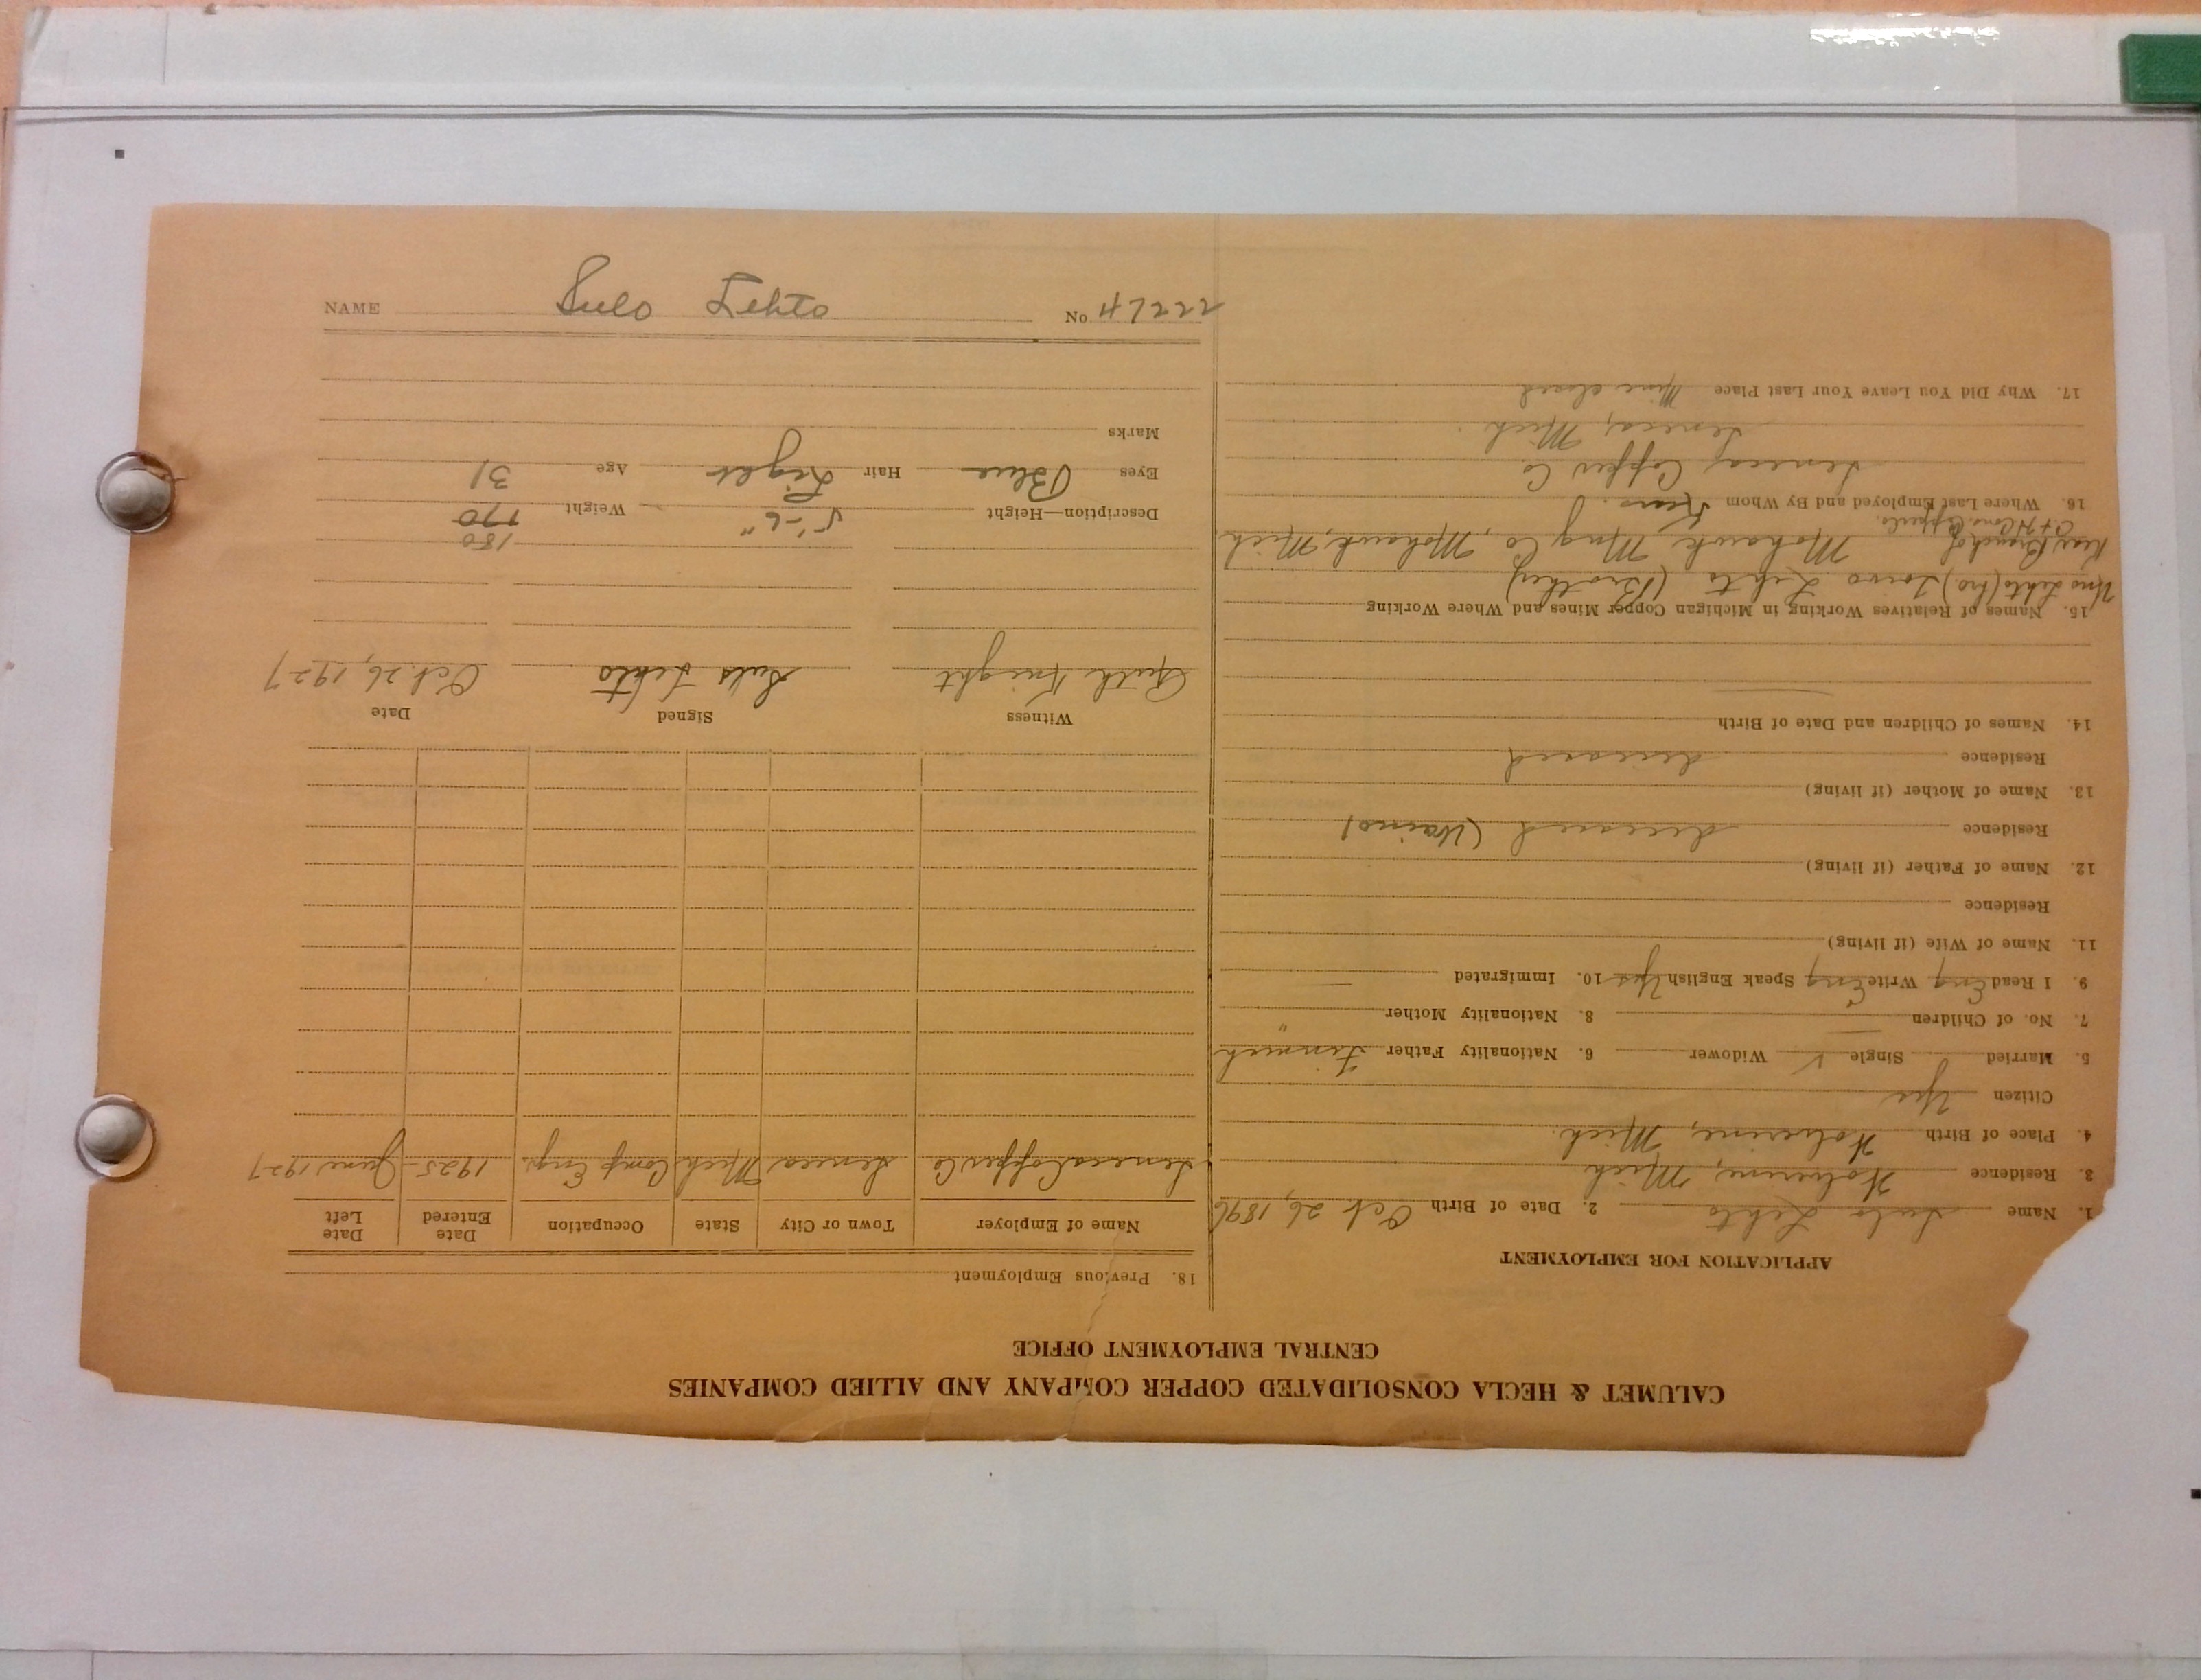 NAME Sulo Lehto No 47222
CALUMET & HECLA CONSOLIDATED COPPER COMPANY AND ALLIED COMPANIES
CENTRAL EMPLOYMENT OFFICE
APPLICATION FOR EMPLOYMENT
1. Name Sulo Lehto 2. Date of Birth Oct 26, 1896
3. Residence Wolverine, Mich
4. Place of Birth Wolverine, Mich.
Citizen Yes
5. Married Single ✓ Widower 6. Nationality Father Finnish
7. No. of Children 8. Nationality Mother "
9. I Read Eng Write Eng Speak English Yes 10. Immigrated
11. Name of Wife (if living)
Residence
12. Name of Father (if living)
Residence deceased (Waino)
13. Name of Mother (if living)
Residence deceased
14. Names of Children and Date of Birth
15. Names of Relatives Working in Michigan Copper Mines and Where Working
Uno Lehto (bro) Toivo Lehto (Brother)
Kear. Branch of Mohawk Mng Co, Mohawk, Mich
C + H Cons. Copper Co.
16. Where Last Employed and By Whom
Seneca Copper Co
Seneca, Mich.
17. Why Did You Leave Your Last Place Mine closed
18. Previous Employment
Name of Employer Town or City State Occupation Date Entered Date Left
Seneca Copper Co Seneca Mich Comp Eng. 1925 June 1927
Witness Signed Date
Ruth Knight Sulo Lehto Oct. 26, 1927
180
Description—Height 5'-6" Weight 170
Eyes Blue Hair Light Age 31
Marks